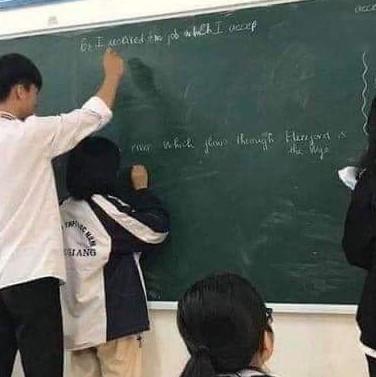 acce
6. I received the job which I accep
river which flows through Hereford is
the Wye
GIANG